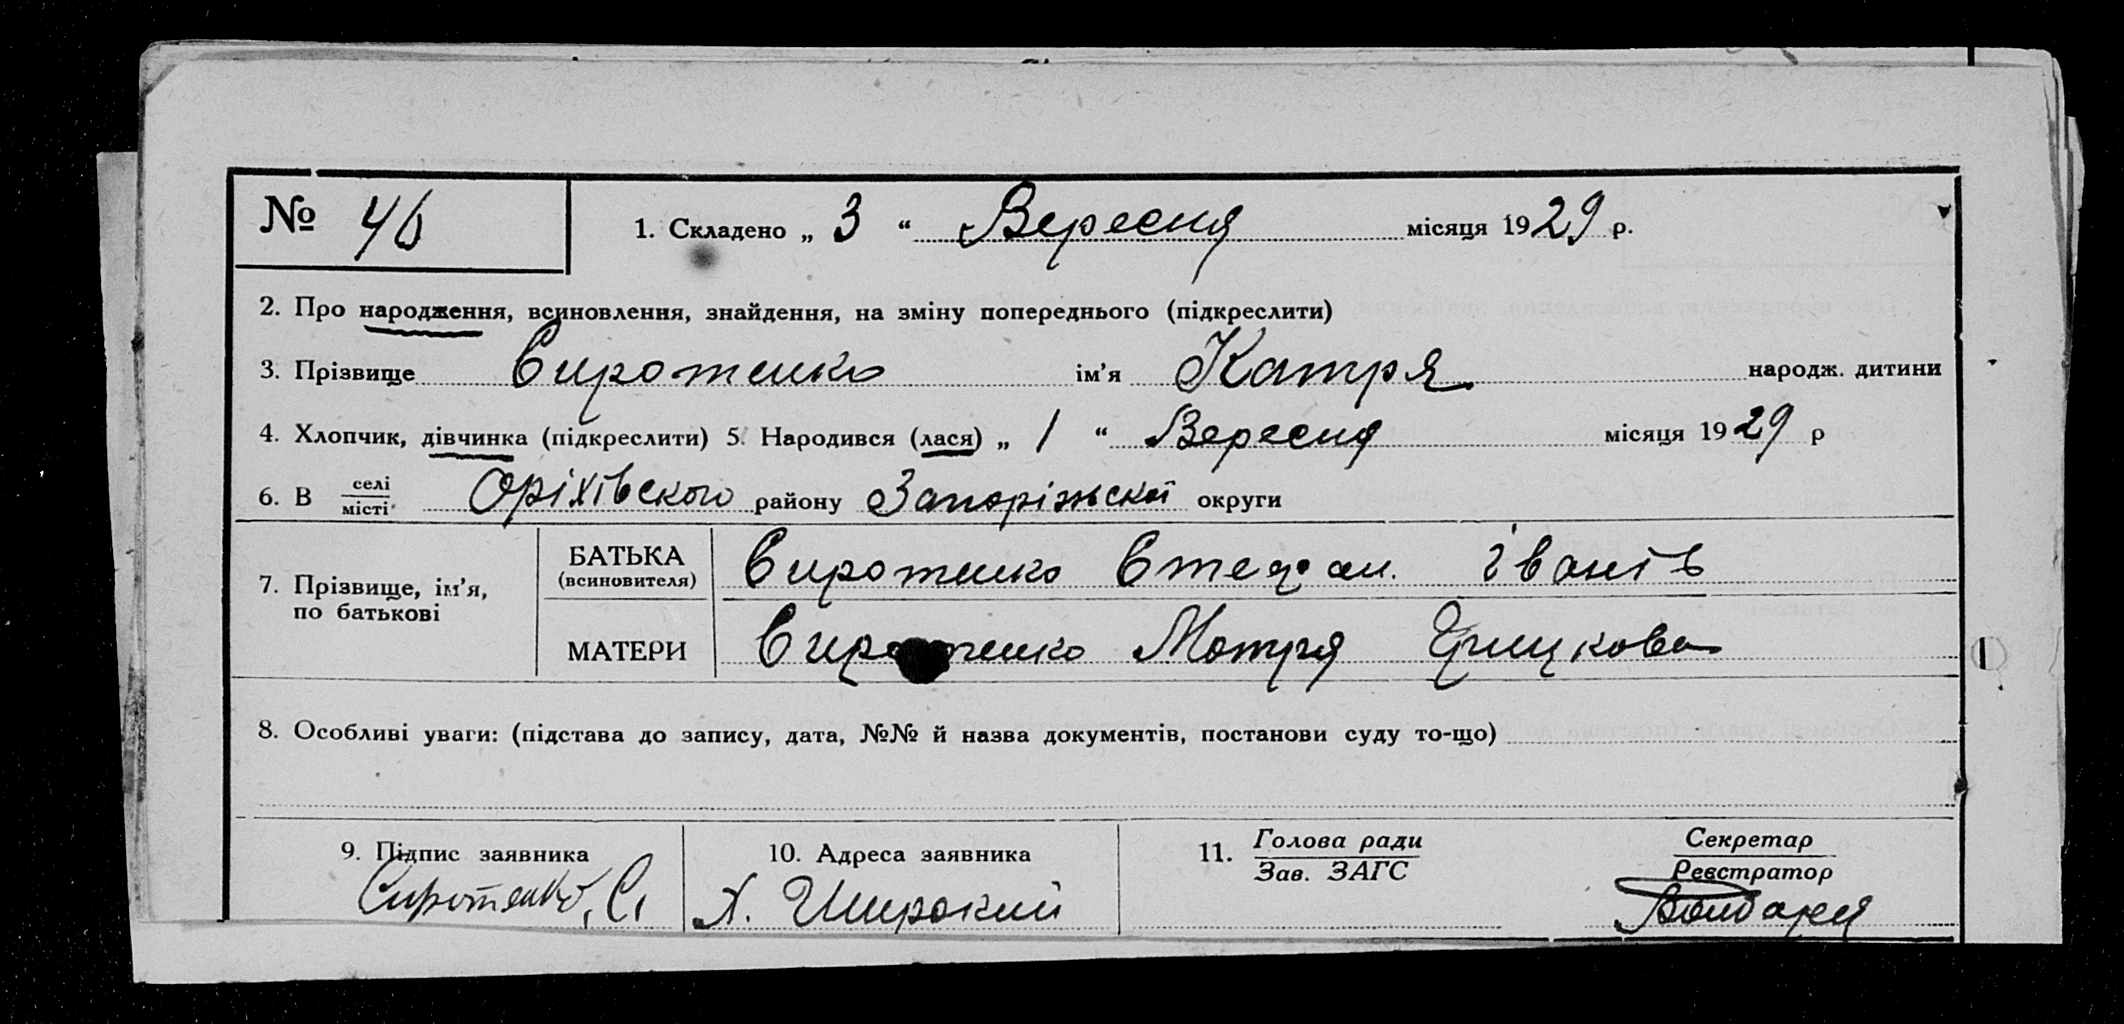 № 46
1. Складено „ 3 “ Вересня місяця 1929 р.
2. Про народження, всиновлення, знайдення, на зміну попереднього (підкреслити)
3. Прізвище Сиротенко ім’я Катря народж. дитини
4. Хлопчик, дівчинка (підкреслити) 5. Народився (лася) „ 1 “ Вересня місяця 1929 р
6. В селі місті Оріхівского району Запоріжскої округи
7. Прізвище, ім’я, по батькові
БАТЬКА (всиновителя) Сиротенко Стефан. Іванів
МАТЕРИ Сиротенко Мотря Грицкова
8. Особливі уваги: (підстава до запису, дата, №№ й назва документів, постанови суду то-що)
9. Підпис заявника
Сиротенко, С.
10. Адреса заявника
Х. Широкий
11. Голова ради
Зав. ЗАГС
Секретар
Реєстратор